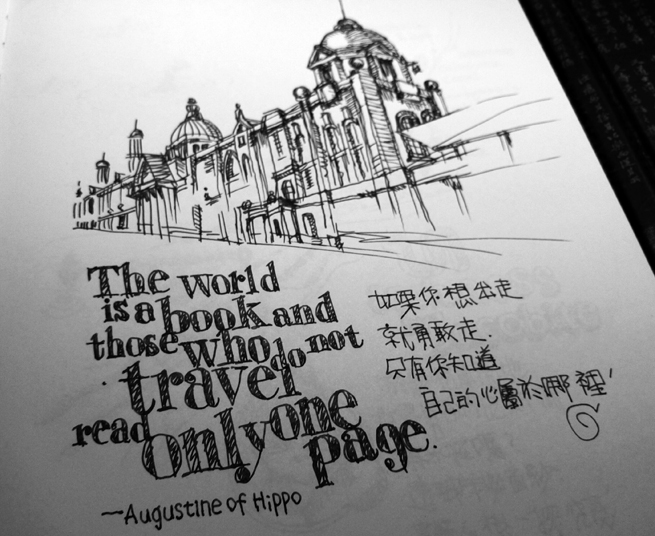 The world
is a book and
those who do not
travel
read only one
page.
—Augustine of Hippo
如果你想出走
就勇敢走.
只有你知道
自己的心屬於哪裡'